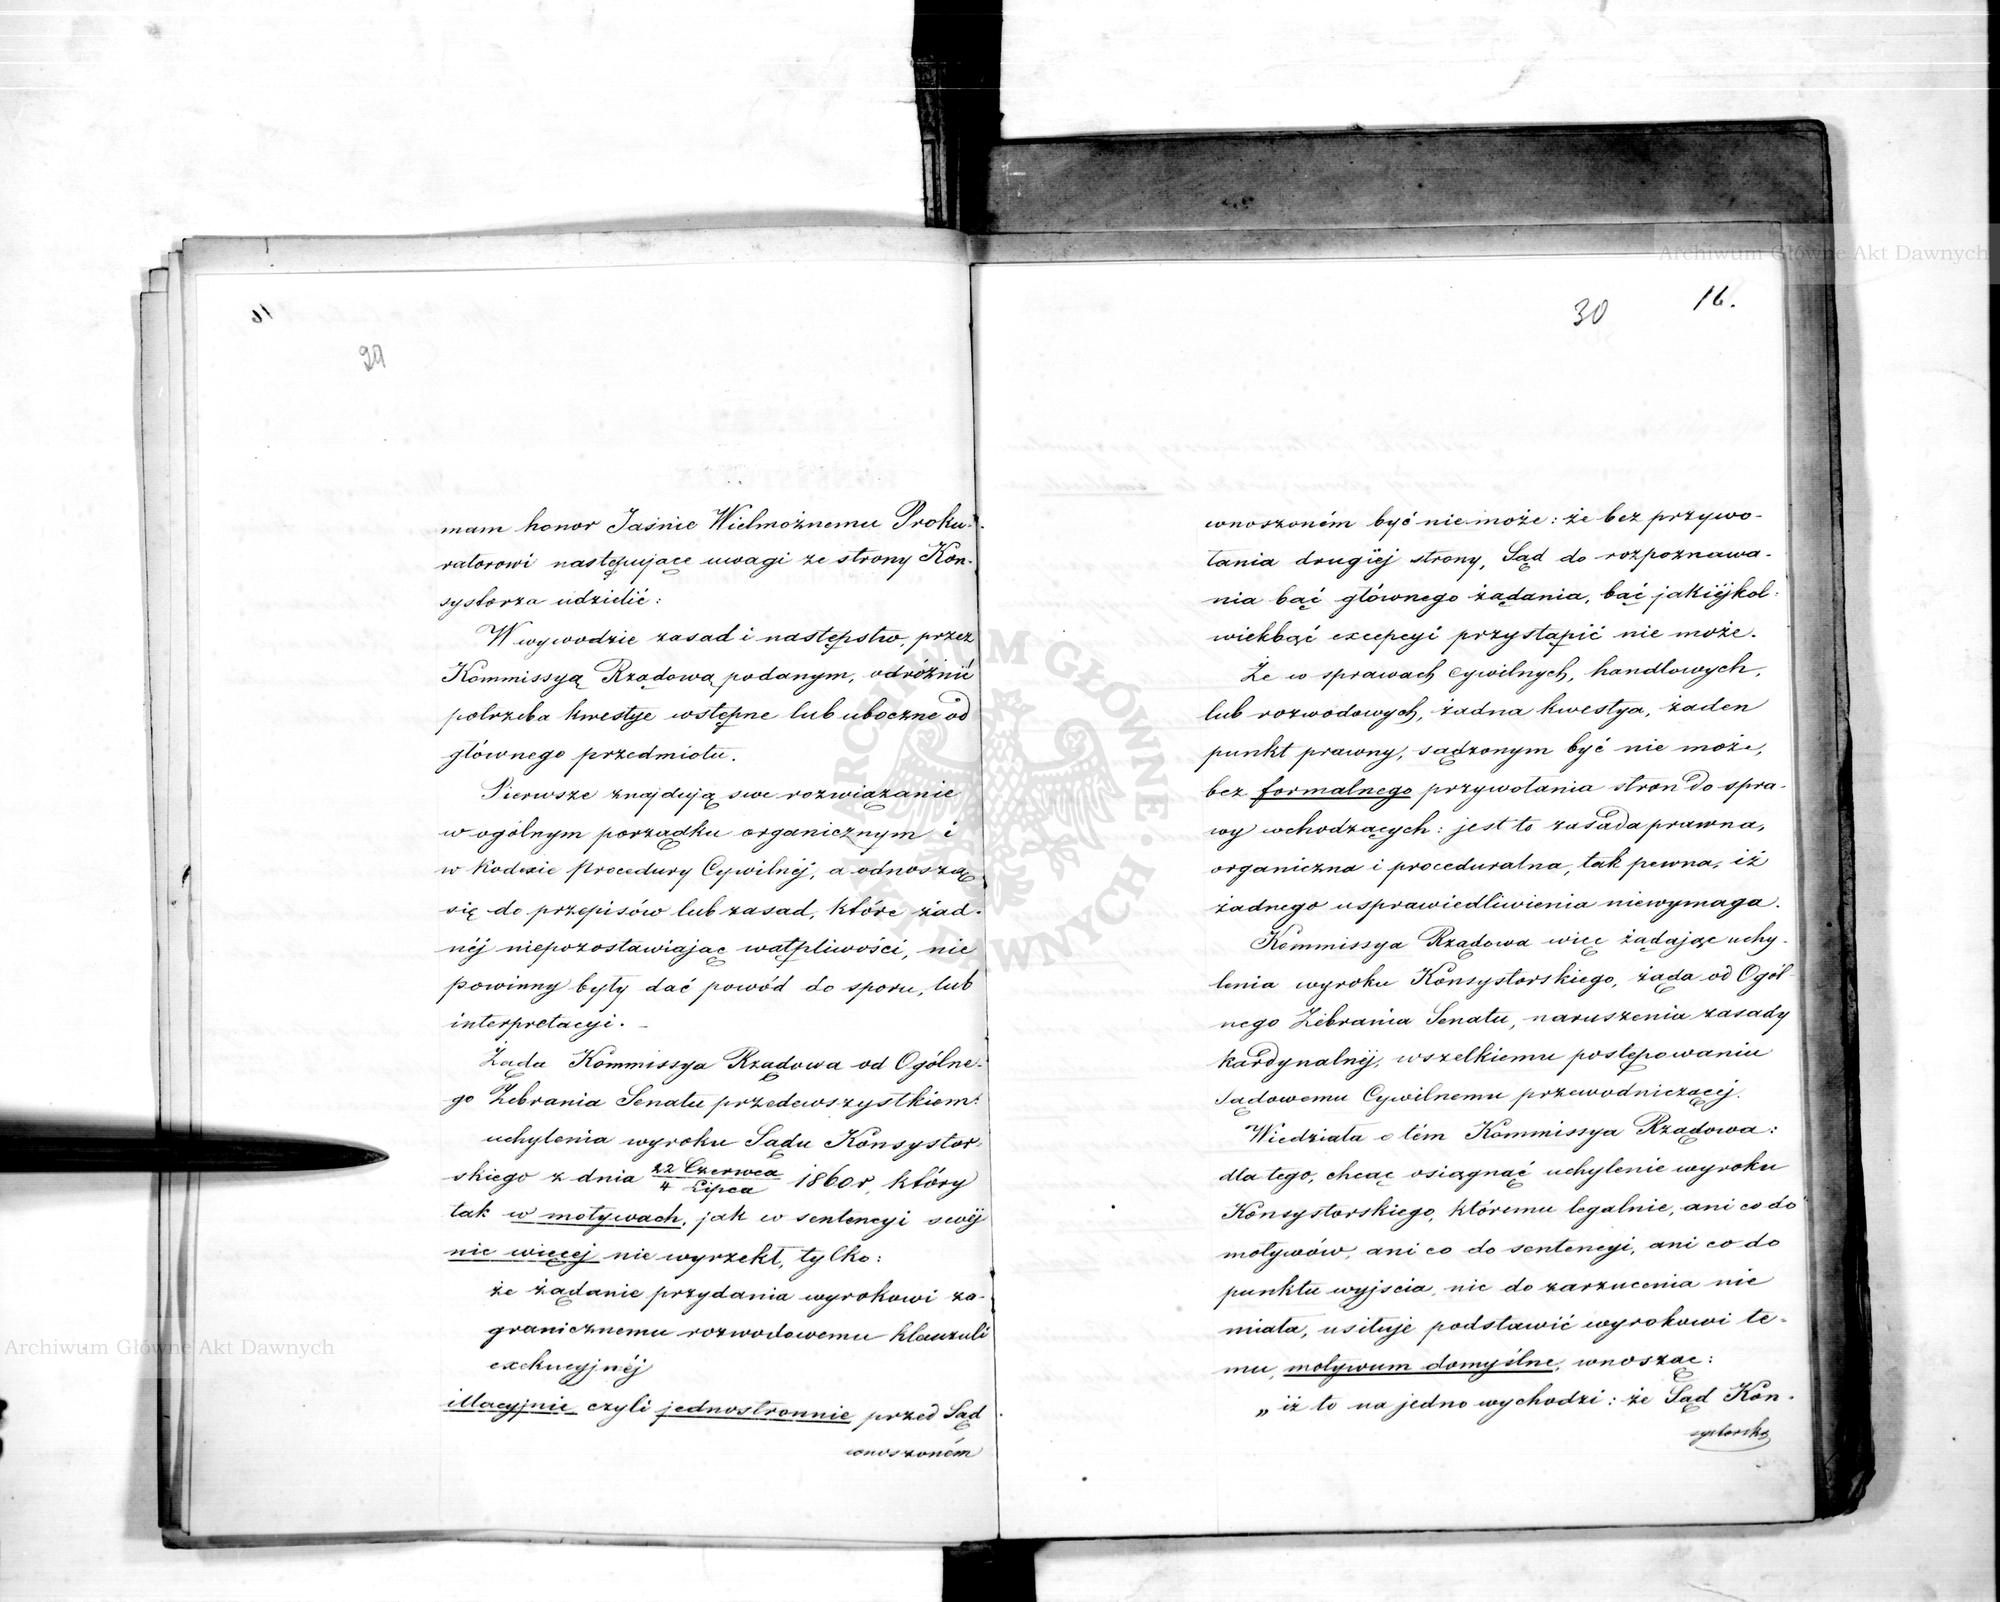 29
mam honor Jaśnie Wielmożnemu Proku-
ratorowi następujące uwagi ze strony Kon-
systorza udzielić:
W wywodzie zasad i następstw, przez
Kommissyą Rządową podanym, odróżnić
potrzeba kwestye wstępne lub uboczne od
głównego przedmiotu.
Pierwsze znajdują swe rozwiązanie
w ogólnym porządku organicznym i
w Kodexie Procedury Cywilnéj, a odnosząc
się do przepisów lub zasad, które żad-
néj niepozostawiając wątpliwości, nie
powinny były dać powód do sporu, lub
interpretacyi. –
Żąda Kommissya Rządowa od Ogólne-
go Zebrania Senatu przedewszystkiem:
uchylenia wyroku Sądu Konsystor-
skiego z dnia 22 Czerwca / 4 Lipca 1860 r, który
tak w motywach, jak w sentencyi swéj
nic więcej nie wyrzekł, tylko:
że żądanie przydania wyrokowi za-
granicznemu rozwodowemu klauzuli
exekucyjnéj
illacyjnie czyli jednostronnie przed Sąd
wnoszoném
30
16.
wnoszoném być niemoże: że bez przywo-
łania drugiéj strony, Sąd do rozpoznawa-
nia bąć głównego żądania, bąć jakiéjkol-
wiekbąć excepcyi przystąpić nie może.
Że w sprawach cywilnych, handlowych,
lub rozwodowych, żadna kwestya, żaden
punkt prawny, sądzonym być nie może,
bez formalnego przywołania stron do spra-
wy wchodzących: jest to zasada prawna,
organiczna i proceduralna, tak pewna, iż
żadnego usprawiedliwienia niewymaga.
Kommissya Rządowa więc żądając uchy-
lenia wyroku Konsystorskiego, żąda od Ogól-
nego Zebrania Senatu, naruszenia zasady
kardynalnéj, wszelkiemu postępowaniu
sądowemu Cywilnemu przewodniczącej.
Wiedziała o tém Kommissya Rządowa:
dla tego, chcąc osiągnąć uchylenie wyroku
Konsystorskiego, któremu legalnie, ani co do
motywów, ani co do sentencyi, ani co do
punktu wyjścia, nic do zarzucenia nie
miała, usiłuje podstawić wyrokowi te-
mu, motywum domyślne, wnosząc:
„ iż to na jedno wychodzi: że Sąd Kon-
systorski
Archiwum Główne Akt Dawnych
Archiwum Główne Akt Dawnych
ARCHIWUM GŁÓWNE AKT DAWNYCH